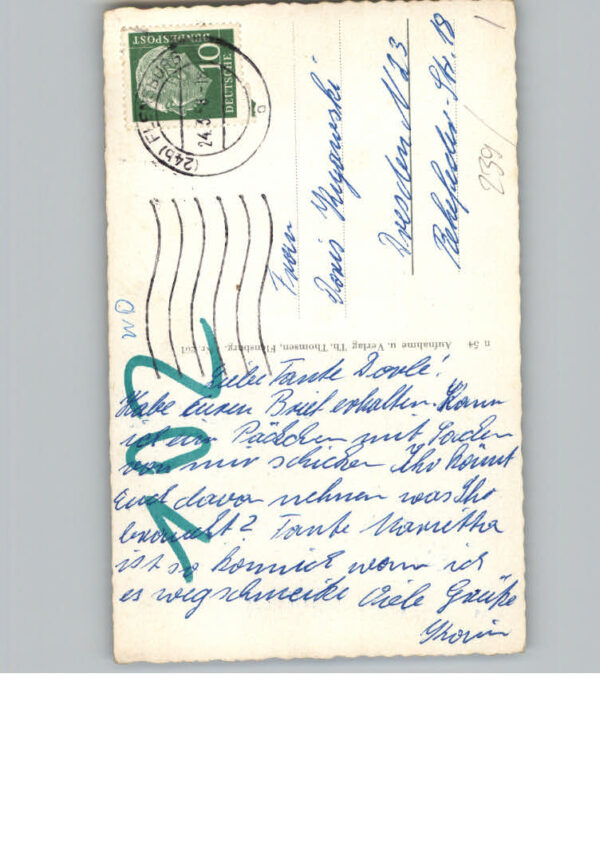 DEUTSCHE
BUNDESPOST
10
(24b) FLENSBURG
24.3.
Frau
Doris
Dresden N 23
Rehefelder-Str. 18
239/
102
n 54 Aufnahme u. Verlag Th. Thomsen, Flensburg.
Liebe Tante Dorle!
Habe Euren Brief erhalten. Kann
ich ein Päckchen mit Sachen
von mir schicken Ihr könnt
Euch davon nehmen was Ihr
braucht? Tante
ist so komisch wenn ich
es wegschmeiße Viele Grüße